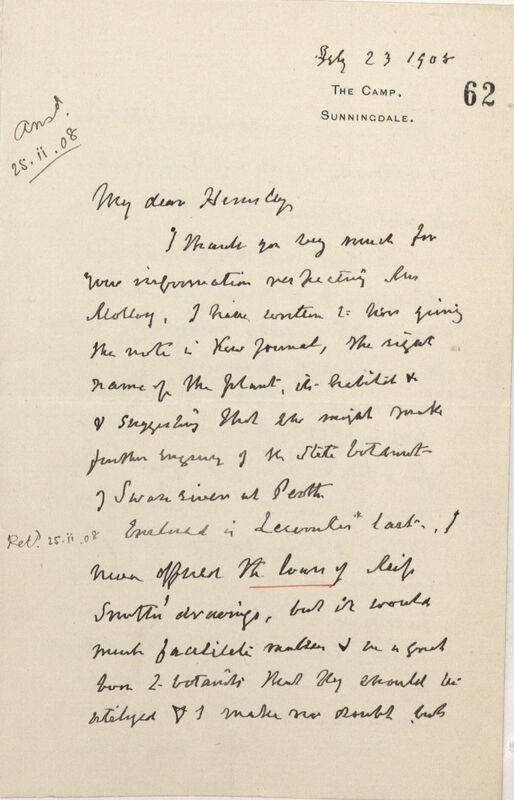 Feby 23 1908
THE CAMP.
SUNNINGDALE.
62
Ansd.
25.ii.08
My dear Hemsley,
I thank you very much for
your information respecting Mrs
Molloy, I have written to him giving
the note in Kew Journal, the right
name of the plant, its habitat &
& suggesting that he might make
further enquiry of the State botanist
of Swan river at Perth
Retd. 25.ii.08
Enclosed is Lecomte's last. I
never offered the loan of Miss
Smith's drawings, but it would
much facilitate matters & be a great
boon to botanists that they should be
utilized & I make no doubt but